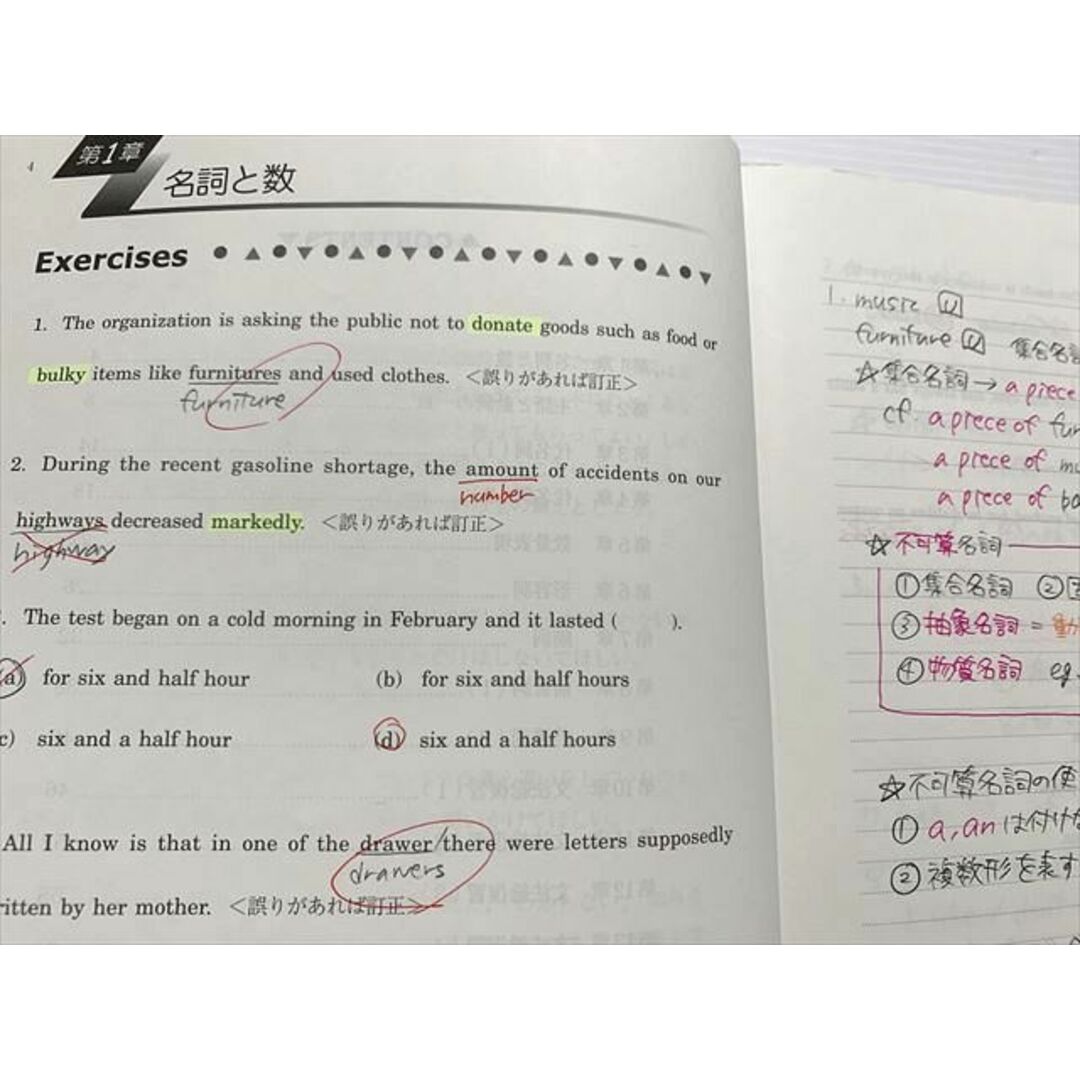 4
第1章
名詞と数
Exercises
1. The organization is asking the public not to donate goods such as food or
bulky items like furnitures and used clothes. <誤りがあれば訂正>
furniture
2. During the recent gasoline shortage, the amount of accidents on our
number
highways decreased markedly. <誤りがあれば訂正>
highway
. The test began on a cold morning in February and it lasted ( ).
(a) for six and half hour (b) for six and half hours
c) six and a half hour (d) six and a half hours
All I know is that in one of the drawer there were letters supposedly
drawers
ritten by her mother. <誤りがあれば訂正>
1. music U
furniture U 集合名詞
☆集合名詞→ a piece
cf. a piece of fur
a piece of mu
a piece of ba
☆不可算名詞
①集合名詞 ②
③抽象名詞 =
④物質名詞 eg.
☆不可算名詞の使
① a, anは付けな
② 複数形を表す